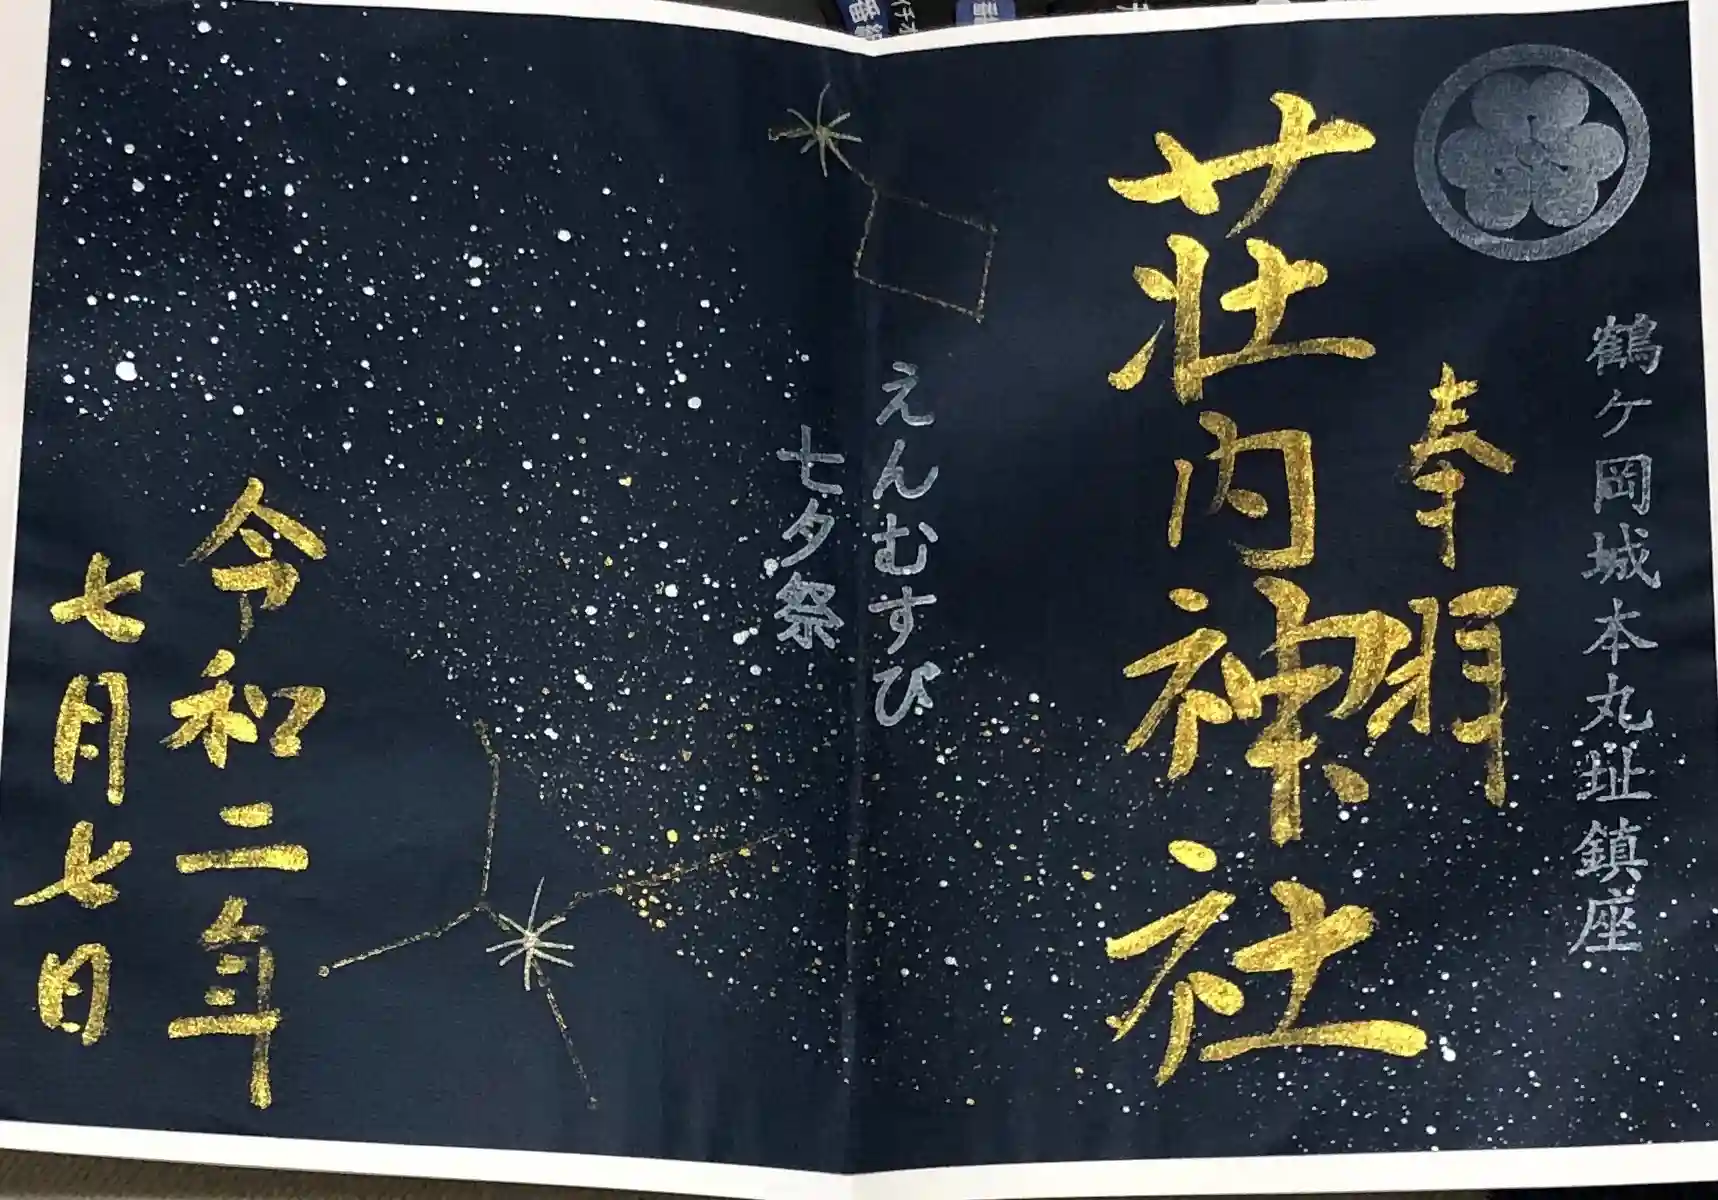 鶴ヶ岡城本丸趾鎮座
奉拝
荘内神社
えんむすび
七夕祭
令和二年
七月七日